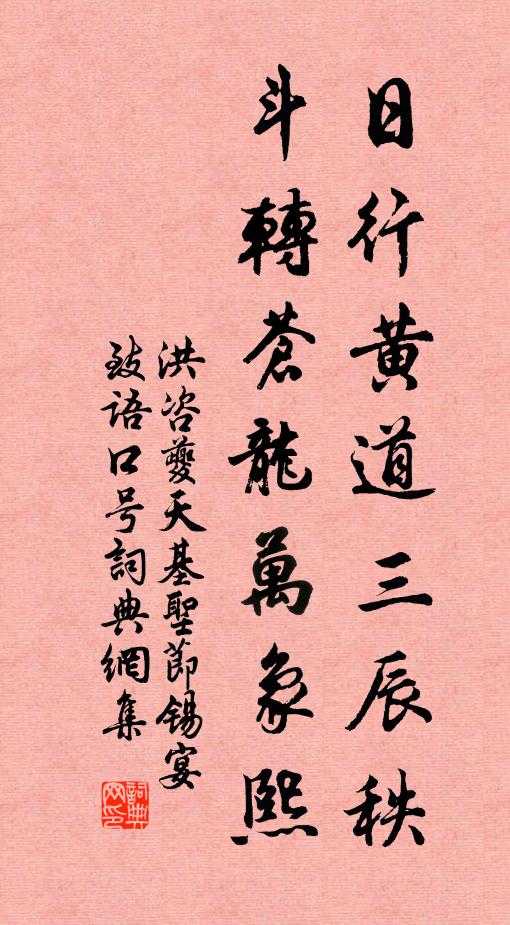 日行黄道三辰秩
斗轉蒼龍萬象熙
洪咨夔天基聖節錫宴
致語口号詞典網集
詞典
网印